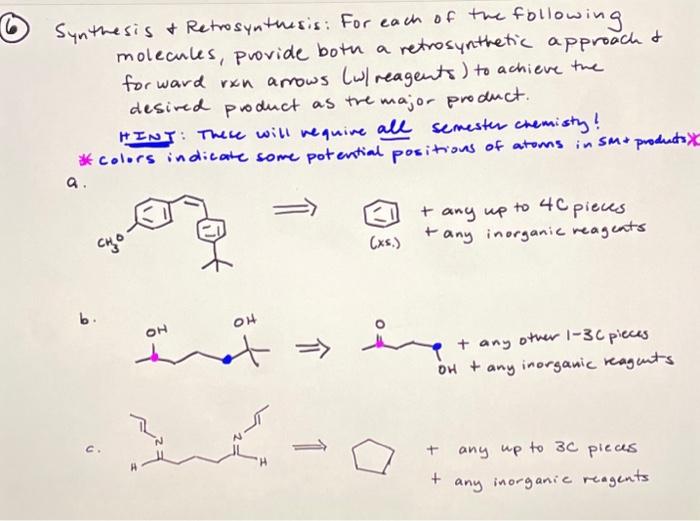 6 Synthesis & Retrosynthesis: For each of the following
molecules, provide both a retrosynthetic approach &
forward rxn arrows (w/ reagents) to achieve the
desired product as the major product.
HINT: These will require all semester chemisty!
* colors indicate some potential positions of atoms in SM + products *
a.
CH3O
⇒
(xs.)
+ any up to 4C pieces
+ any inorganic reagents
b.
OH
OH
⇒
O
OH
+ any other 1-3C pieces
+ any inorganic reagents
c.
N
H
N
H
⇒
+ any up to 3C pieces
+ any inorganic reagents